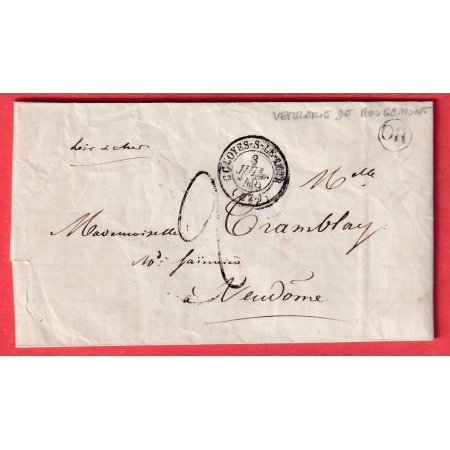 VERRERIE DE ROUGEMONT
OR
Loir et cher
CLOYES-S-LE-LOIR
8
JUIL.
(27)
2
Mlle
Mademoiselle Tramblay
Md. faïencière
à Vendôme